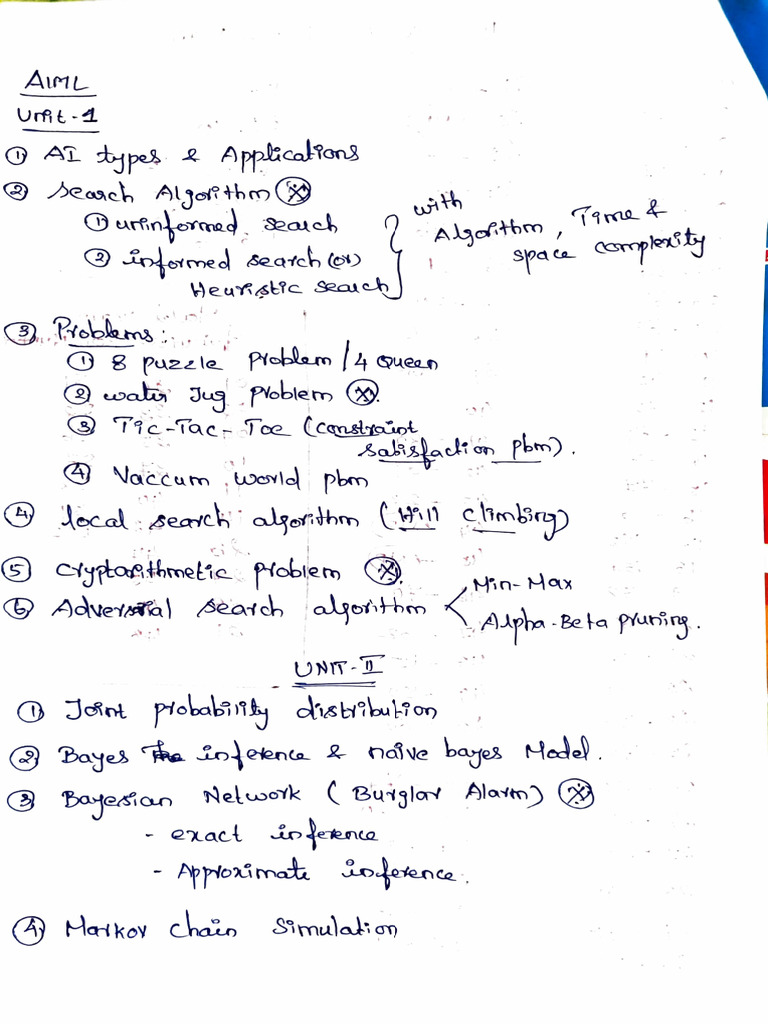 AIML
Unit-1
① AI types & Applications
② Search Algorithm ⊛
① uninformed search
② informed search (or)
Heuristic search
with
Algorithm, Time &
space complexity
③ Problems:
① 8 puzzle problem / 4 Queen
② water Jug problem ⊛.
③ Tic-Tac-Toe (constraint
satisfaction pbm).
④ Vaccum world pbm
④ local search algorithm (Hill climbing)
⑤ cryptarithmetic problem ⊛.
⑥ Adversrial search algorithm
Min-Max
Alpha-Beta pruning.
UNIT-II
① Joint probability distribution
② Bayes inference & naïve bayes Model.
③ Bayesian Network (Burglar Alarm) ⊛
- exact inference
- Approximate inference.
④ Markov chain simulation